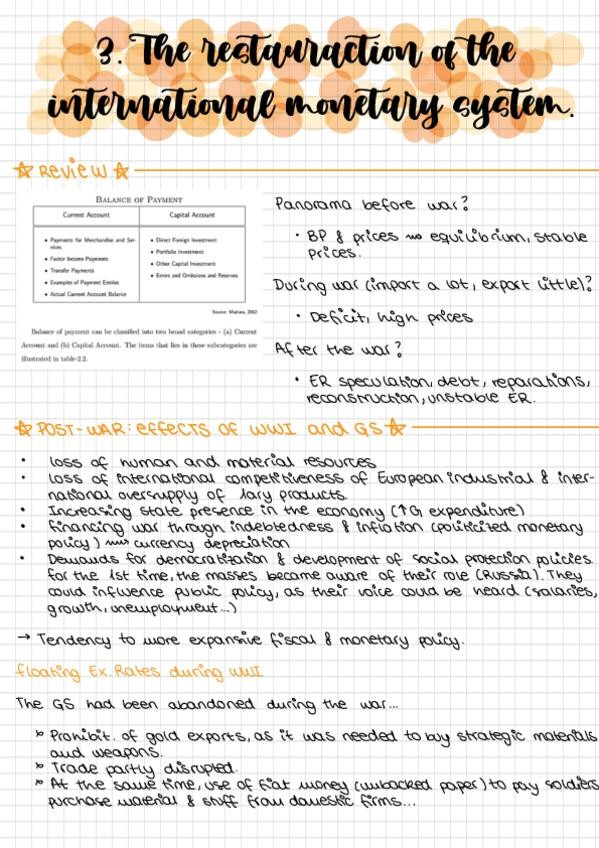 3. The restauraction of the
international monetary system.
☆ Review ☆
BALANCE OF PAYMENT
Current Account
Capital Account
• Payments for Merchandise and Ser-
vices
• Factor Income Payments
• Transfer Payments
• Examples of Payment Entries
• Actual Current Account Balance
• Direct Foreign Investment
• Portfolio Investment
• Other Capital Investment
• Errors and Omissions and Reserves
Source: Mathew, 2002
Balance of payment can be classified into two broad categories - (a) Current
Account and (b) Capital Account. The items that lies in these subcategories are
illustrated in table-2.2.
Panorama before war?
• BP & prices → equilibrium, stable
prices.
During war (import a lot, export little)?
• Deficit, high prices
After the war?
• ER speculation, debt, reparations,
reconstruction, unstable ER.
☆ POST-WAR: effects of WWI and GS ☆
• loss of human and material resources
• loss of international competitiveness of European industrial & inter-
national oversupply of 1ary products.
• Increasing state presence in the economy (↑G, expenditure)
• Financing war through indebtedness & inflation (politicited monetary
policy) → currency depreciation
• Demands for democratization & development of social protection policies.
For the 1st time, the masses became aware of their role (Russia). They
could influence public policy, as their voice could be heard (salaries,
growth, unemployment...)
→ Tendency to more expansive fiscal & monetary policy.
Floating Ex. Rates during WWI
The GS had been abandoned during the war...
Prohibit. of gold exports, as it was needed to buy strategic materials
and weapons.
Trade partly disrupted.
At the same time, use of fiat money (unbacked paper) to pay soldiers
purchase material & stuff from domestic firms...